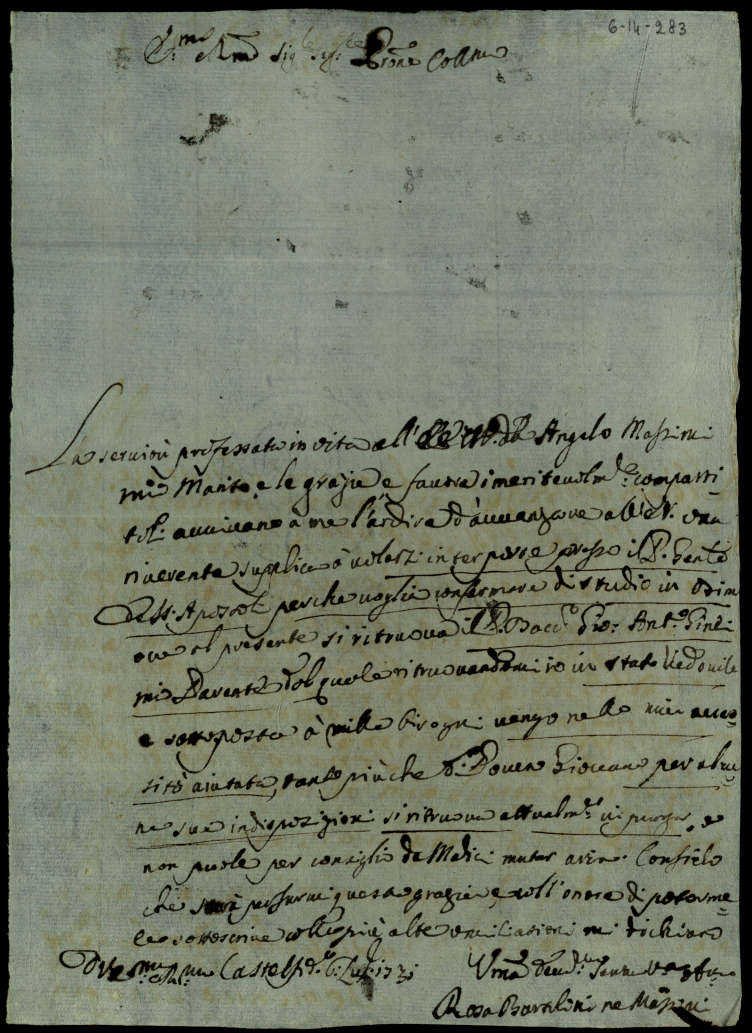 6-14-283
Sig.r Sig.r Prōne Coll.mo
La servitù professata in vita all' Angelo Massini
mio Marito, e le grazie e favori imeritevolm.e comparti
tili avvivano à me l'ardire d'avvanzare all' E.V. una
riverente supplica à volersi interporre presso il P. Gen.le
de SS. Apostoli perche voglia confermare di studio in Osimo
ove al presente si ritruova il P. Bacc.e Gio: Ant.o
mio Parente dal quale ritruovandomi io in stato Vedovile
e sottoposta à mille bisogni vengo nelle mie neces=
sità aiutata, tanto più che d.o Povero Giovane per alcu
ne sue indisposizioni si ritruova attualm.te in purga, e
non puole per consiglio de Medici mutar aria. Confido
che sarà per farmi questa grazia, e coll'onore di poterme
le sottoscrivere colle più alte umiliazioni mi dichiaro
Di V. Castelf.do 6. 1731
Um.a
Rosa Bartolini ne Massini